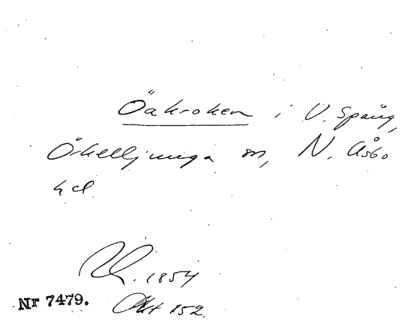 Öakroken i V. Spång,
Örkelljunga sn, N. Åsbo
hd
1854
Nr 7479. Akt 152.